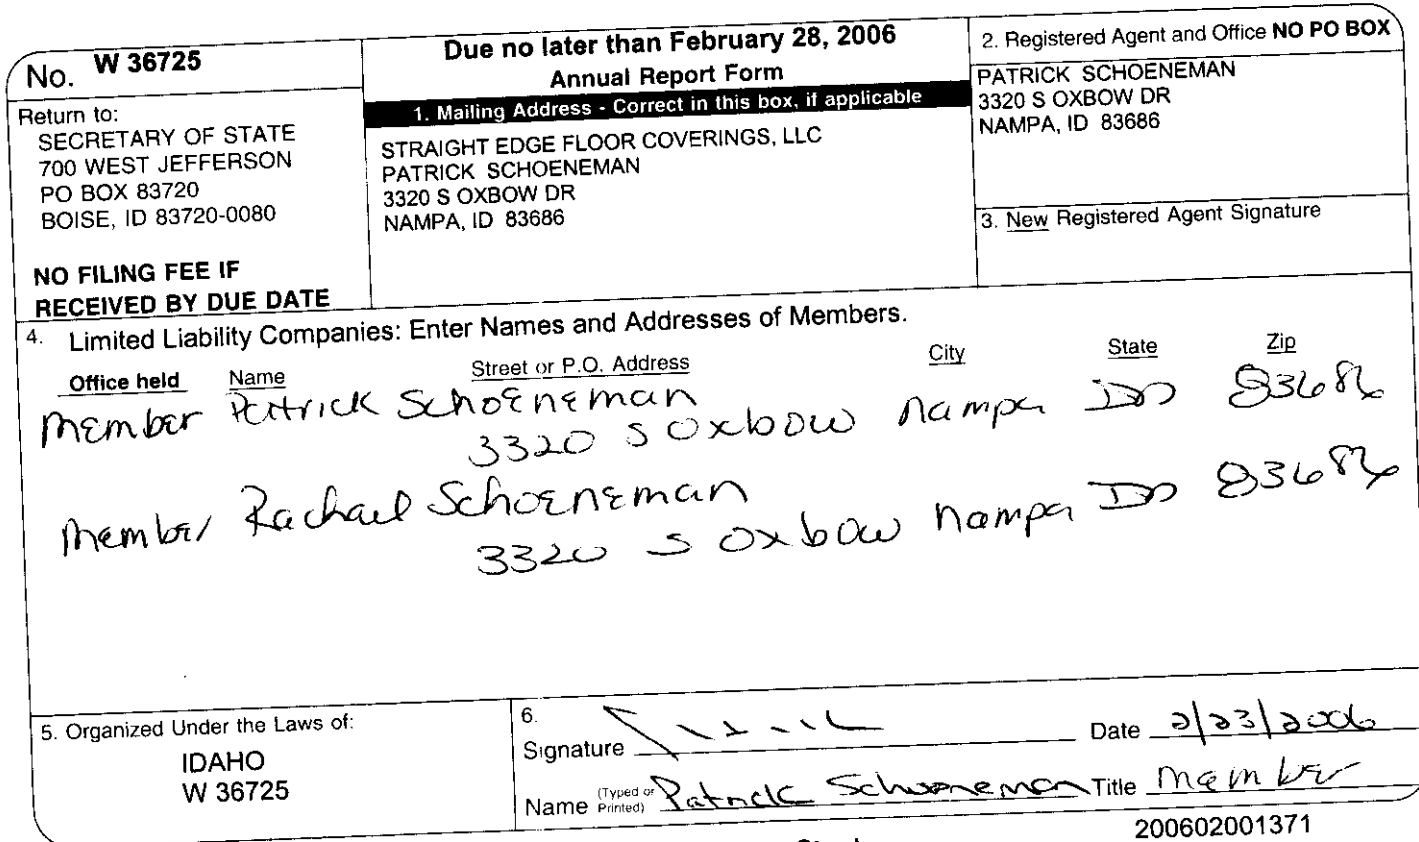 No. W 36725
Return to:
SECRETARY OF STATE
700 WEST JEFFERSON
PO BOX 83720
BOISE, ID 83720-0080
NO FILING FEE IF
RECEIVED BY DUE DATE
Due no later than February 28, 2006
Annual Report Form
1. Mailing Address - Correct in this box, if applicable
STRAIGHT EDGE FLOOR COVERINGS, LLC
PATRICK SCHOENEMAN
3320 S OXBOW DR
NAMPA, ID 83686
2. Registered Agent and Office NO PO BOX
PATRICK SCHOENEMAN
3320 S OXBOW DR
NAMPA, ID 83686
3. New Registered Agent Signature
4. Limited Liability Companies: Enter Names and Addresses of Members.
Office held Name Street or P.O. Address City State Zip
Member Patrick Schoeneman
3320 S Oxbow Nampa ID 83686
Member Rachael Schoeneman
3320 S Oxbow Nampa ID 83686
5. Organized Under the Laws of:
IDAHO
W 36725
6.
Signature Date 2/23/2006
Name (Typed or Printed) Patrick Schoeneman Title Member
200602001371